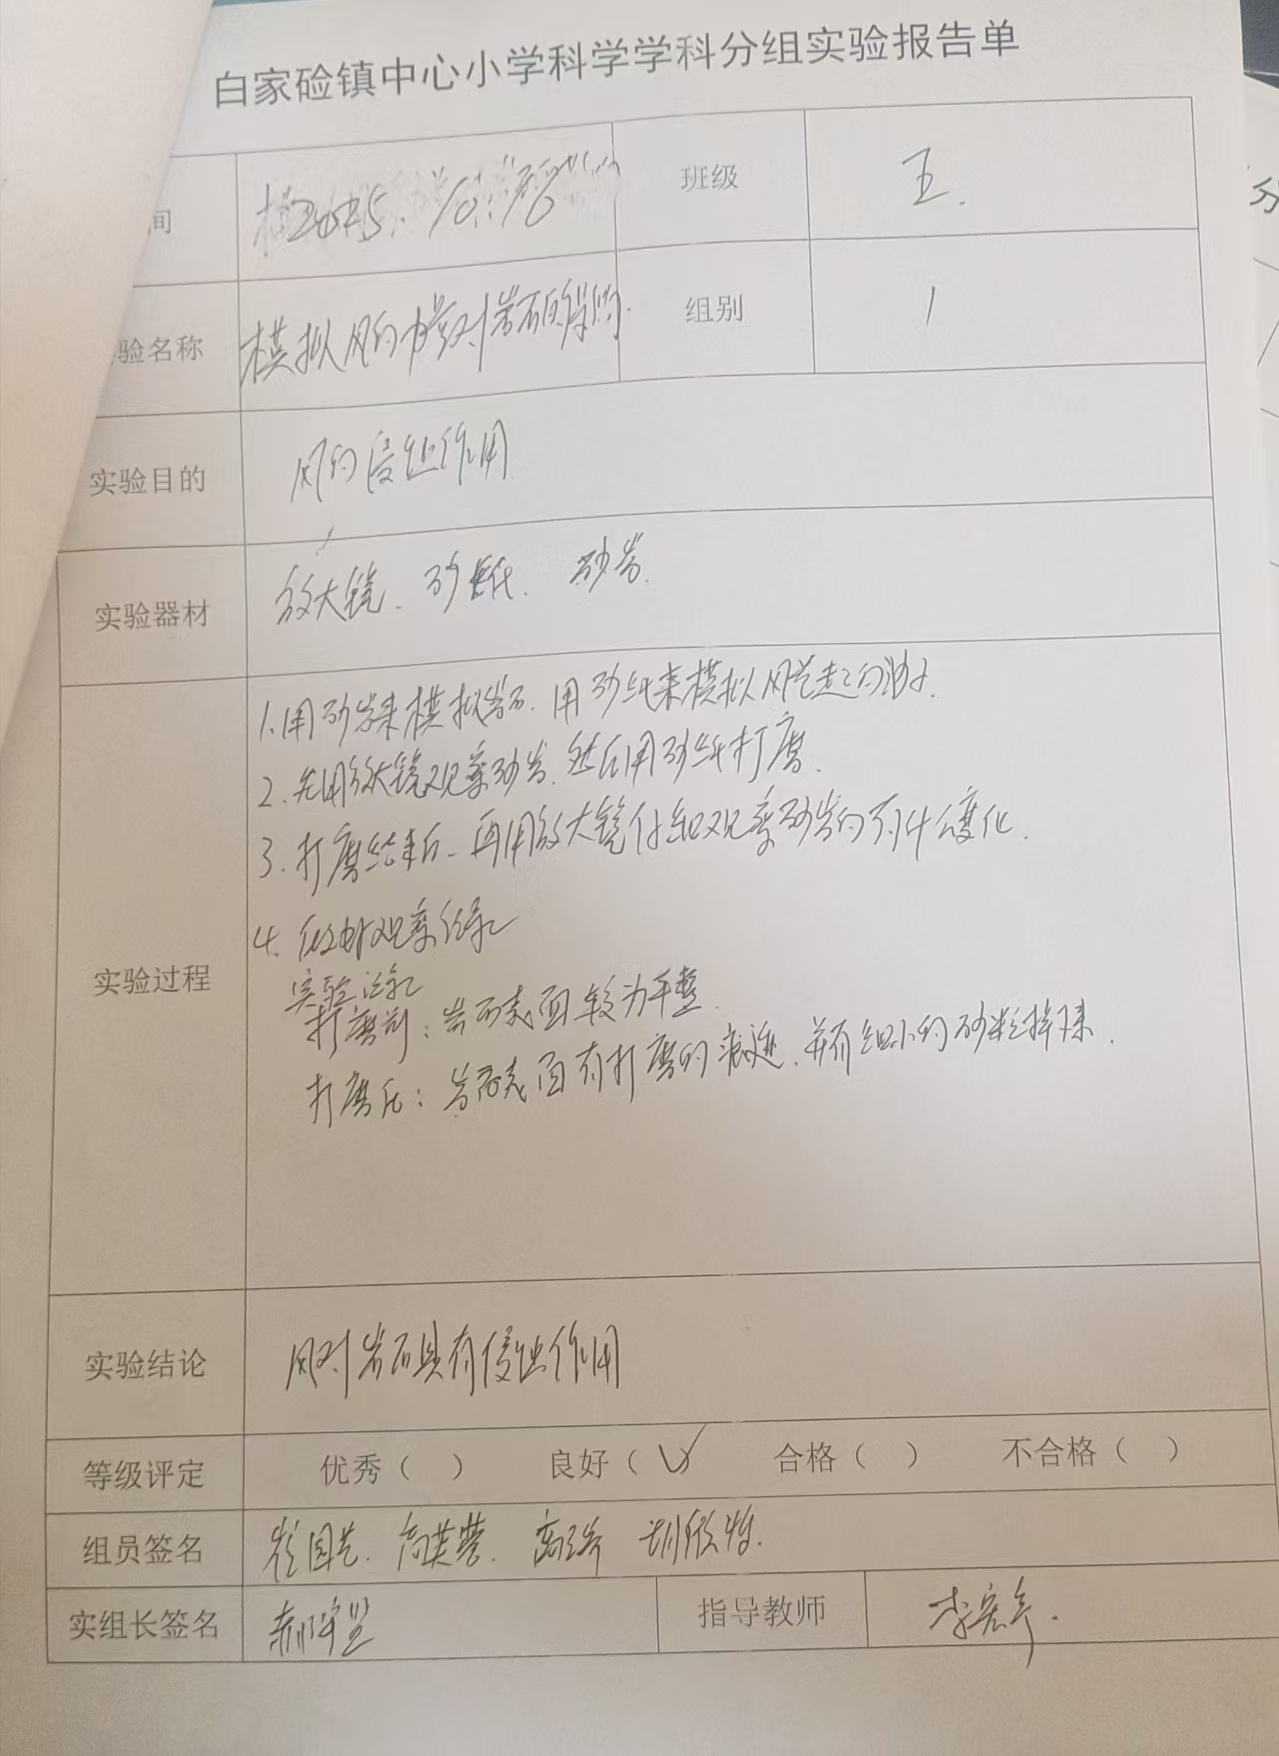 白家硷镇中心小学科学学科分组实验报告单
间 2025.10.16 班级 五.
验名称 模拟风的力量对岩石的影响. 组别 1
实验目的 风的侵蚀作用
实验器材 放大镜、砂纸、砂岩.
1.用砂岩来模拟岩石.用砂纸来模拟风卷起的沙子.
2.先用放大镜观察砂岩.然后用砂纸打磨.
3.打磨结束后、再用放大镜仔细观察砂岩的有什么变化.
4.做好观察记录
实验过程
实验记录
打磨前:岩石表面较为平整.
打磨后:岩石表面有打磨的痕迹.并有细小的砂粒掉下来.
实验结论 风对岩石具有侵蚀作用
等级评定 优秀( ) 良好(√) 合格( ) 不合格( )
组员签名
实组长签名 指导教师
分